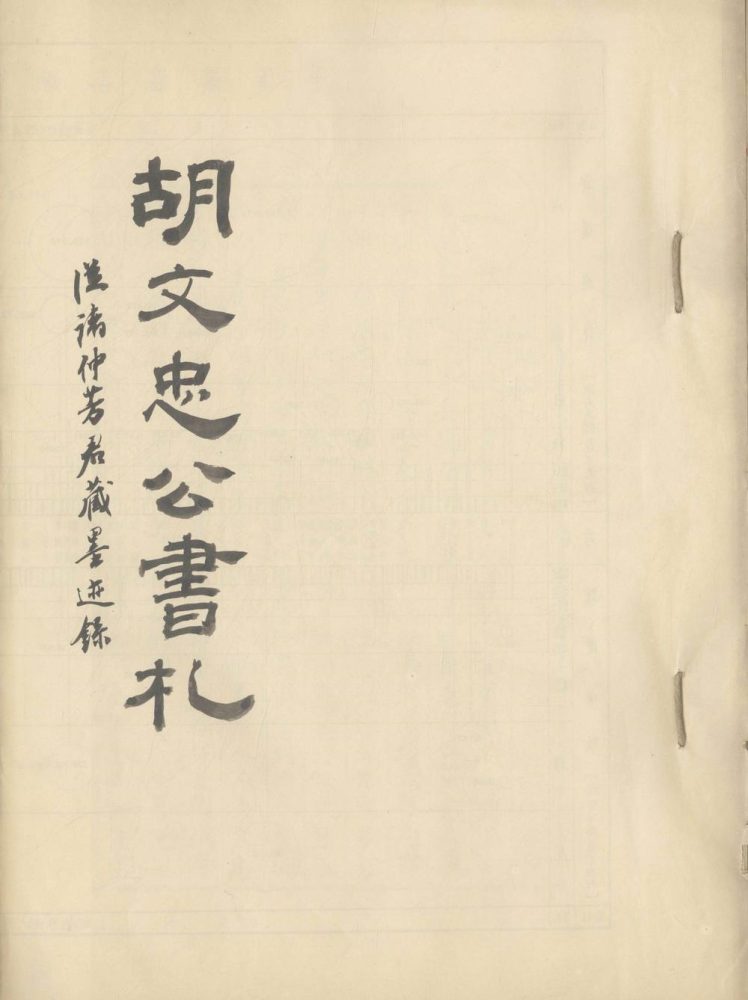 胡文忠公書札
從諸仲芳君藏墨迹錄